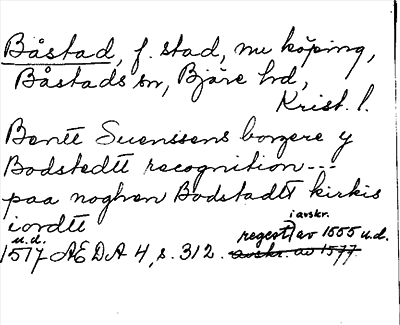 Båstad, f. stad, nu köping,
Båstads sn, Bjäre hd,
Krist. l.
Bentt Suenssens borgere y
Bodstedtt recognition---
paa noghen Bodstadtt kirkis
iordtt
i avskr.
u.d. regest) av 1555 u.d.
1517 ÆDA 4, s. 312. avskr. av 1577.